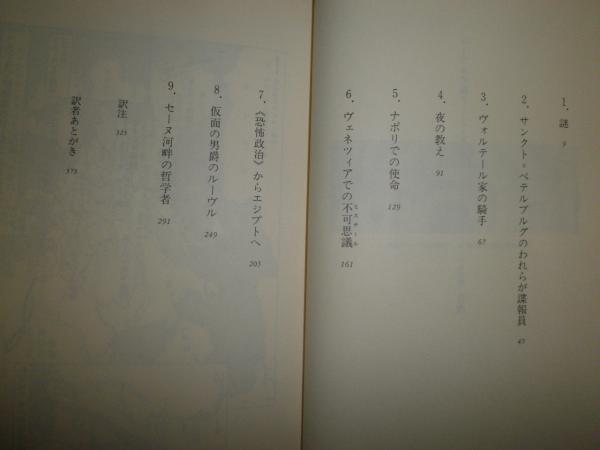 1. 謎 9
2. サンクト=ペテルブルグのわれらが諜報員 45
3. ヴォルテール家の騎手 67
4. 夜の教え 91
5. ナポリでの使命 129
6. ヴェネツィアでの不可思議 161
ミステール
7. 《恐怖政治》からエジプトへ 205
8. 仮面の男爵のルーヴル 249
9. セーヌ河畔の哲学者 291
訳注 325
訳者あとがき 375